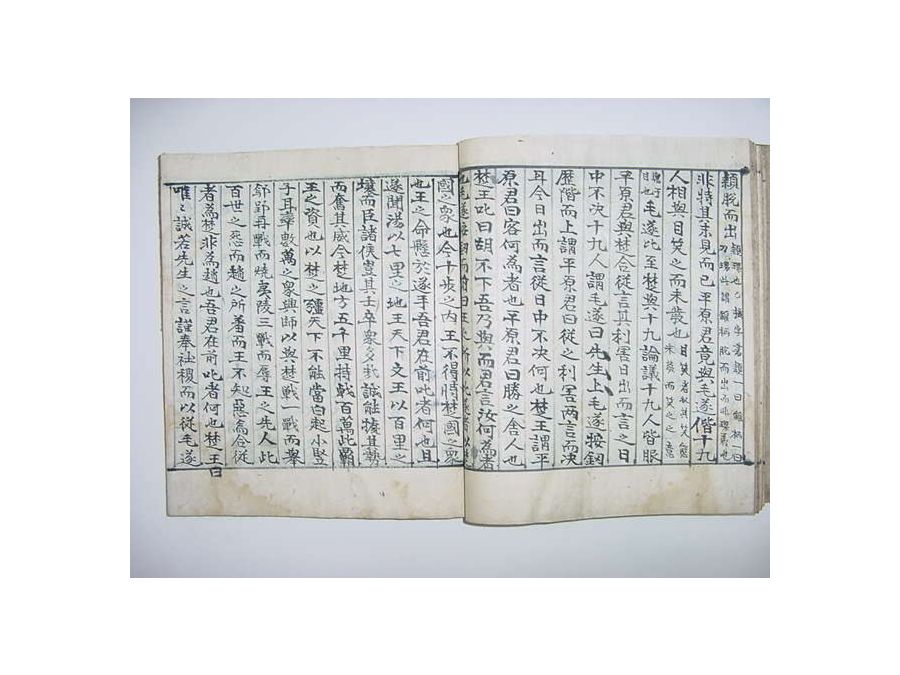 穎脫而出
非特其末見而已平原君竟與毛遂偕十九
人相與目笑之而未發也
毛遂比至楚與十九論議十九人皆服
平原君與楚合從言其利害日出而言之日
中不决十九人謂毛遂曰先生上毛遂按劔
歷階而上謂平原君曰從之利害两言而决
耳今日出而言從日中不决何也楚王謂平
原君曰客何為者也平原君曰勝之舍人也
楚王叱曰胡不下吾乃與而君言汝何為者
也毛遂按劔而前曰王之所以叱遂者以楚
國之衆也今十步之內王不得恃楚國之衆
也王之命懸於遂手吾君在前叱者何也且
遂聞湯以七里之地王天下文王以百里之
壤而臣諸侯豈其士卒衆多㢤誠能據其勢
而奮其威今楚地方五千里持戟百萬此霸
王之資也以楚之彊天下不能當白起小竪
子耳率數萬之衆興師以與楚戰一戰而舉
鄢郢再戰而燒夷陵三戰而辱王之先人此
百世之怨而趙之所羞而王不知惡焉合從
者為楚非為趙也吾君在前叱者何也楚王曰
唯〻誠若先生之言謹奉社稷而以從毛遂